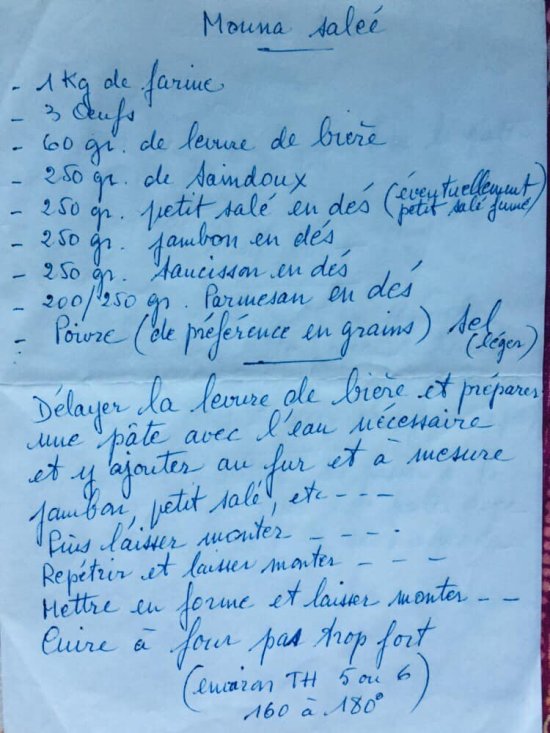 Mouna salée
- 1 Kg de farine
- 3 Oeufs
- 60 gr. de levure de bière
- 250 gr. de Saindoux
- 250 gr. petit salé en dés (éventuellement petit salé fumé)
- 250 gr. jambon en dés
- 250 gr. saucisson en dés
- 200/250 gr. Parmesan en dés
- Poivre (de préférence en grains) sel (léger)
Délayer la levure de bière et préparer
une pâte avec l'eau nécessaire
et y ajouter au fur et à mesure
jambon, petit salé, etc - - -
Puis laisser monter, - - - -
Repétrir et laisser monter - - -
Mettre en forme et laisser monter - -
Cuire à four pas trop fort
(environ TH 5 ou 6)
160 à 180°